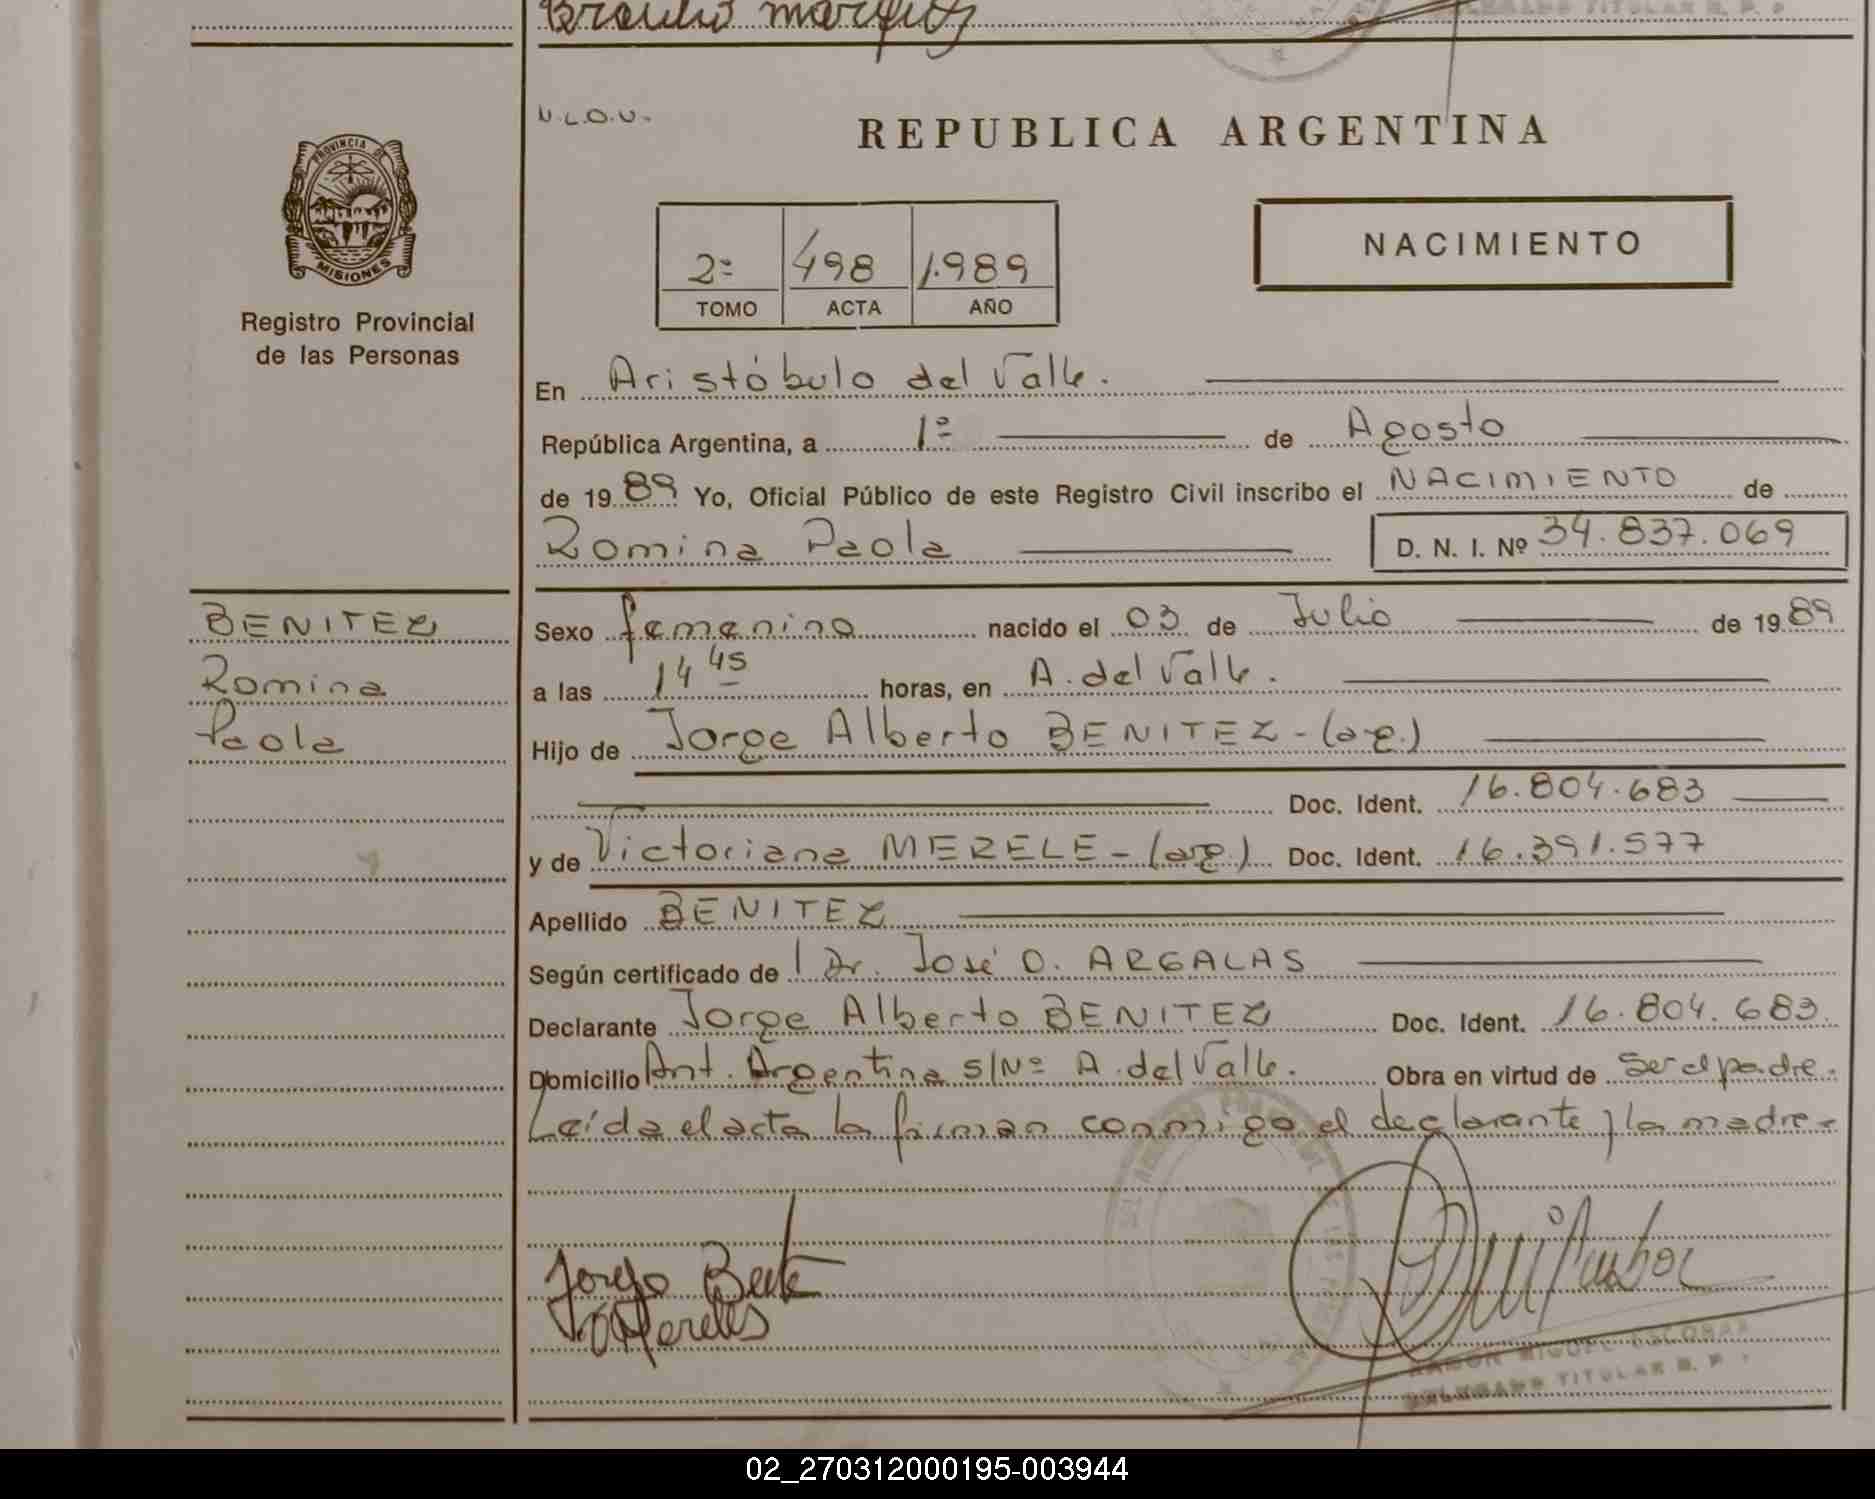 Braulio
PROVINCIA DE
MISIONES
Registro Provincial
de las Personas
BENITEZ
Romina
Paola
N.L.O.V.-
REPUBLICA ARGENTINA
2º 498 1.989
TOMO ACTA AÑO
NACIMIENTO
En Aristóbulo del Valle.
República Argentina, a 1º de Agosto
de 1989 Yo, Oficial Público de este Registro Civil inscribo el NACIMIENTO de
Romina Paola D. N. I. Nº 34.837.069
Sexo femenino nacido el 03 de Julio de 1989
a las 14 45 horas, en A. del Valle.
Hijo de Jorge Alberto BENITEZ - (arg.)
Doc. Ident. 16.804.683
y de Victoriana MERELE - (arg.) Doc. Ident. 16.391.577
Apellido BENITEZ
Según certificado de l Dr. José O. ARGALAS
Declarante Jorge Alberto BENITEZ Doc. Ident. 16.804.683.
Domicilio Ant. Argentina s/Nº A. del Valle. Obra en virtud de ser el padre.
Leída el acta la firman conmigo el declarante y la madre-
Jorge
RAMON MIGUEL ESCOBAR
TITULAR R. P.
02_270312000195-003944